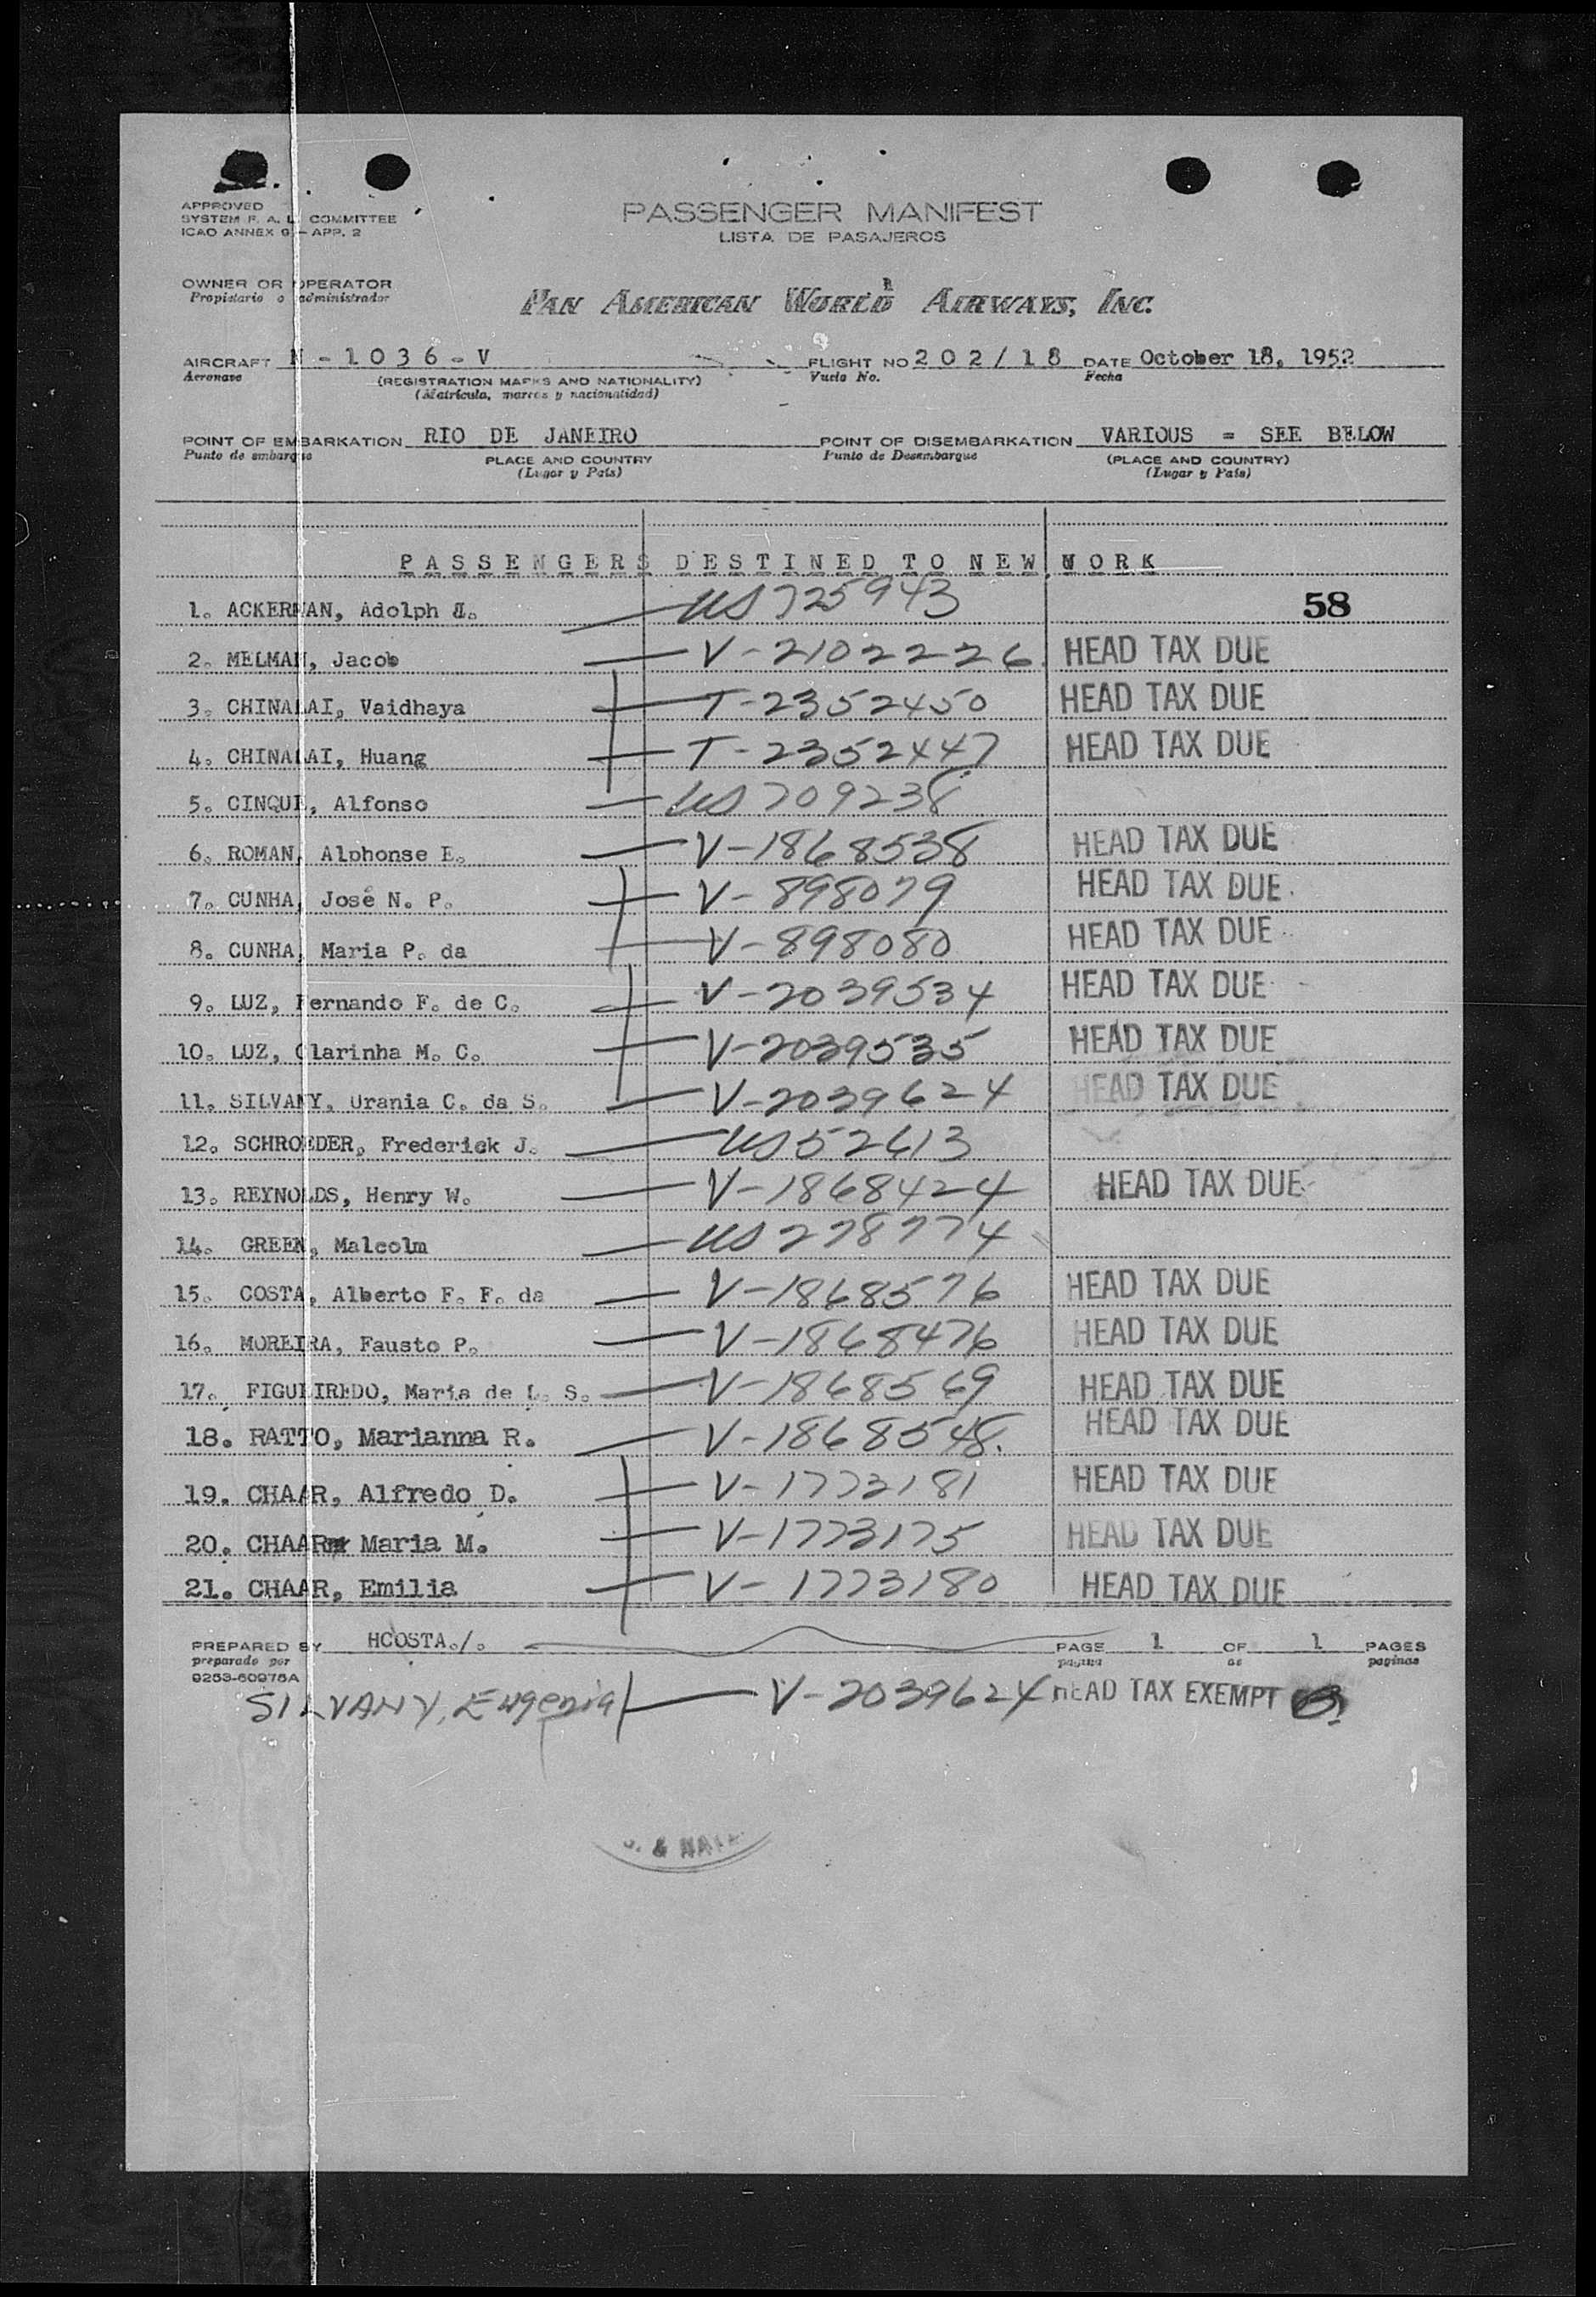 APPROVED
SYSTEM F. A. L. COMMITTEE
ICAO ANNEX 9 - APP. 2
PASSENGER MANIFEST
LISTA DE PASAJEROS
OWNER OR OPERATOR
Propietario o administrador
PAN AMERICAN WORLD AIRWAYS, INC.
AIRCRAFT N - 1 0 3 6 - V FLIGHT NO 2 0 2 / 1 8 DATE October 18, 1952
Aeronave (REGISTRATION MARKS AND NATIONALITY) Vuelo No. Fecha
(Matrícula, marcas y nacionalidad)
POINT OF EMBARKATION RIO DE JANEIRO POINT OF DISEMBARKATION VARIOUS = SEE BELOW
Punto de embarque PLACE AND COUNTRY Punto de Desembarque (PLACE AND COUNTRY)
(Lugar y País) (Lugar y País)
P A S S E N G E R S D E S T I N E D T O N E W W O R K
1. ACKERMAN, Adolph J. US 725943 58
2. MELMAN, Jacob V-2102226 HEAD TAX DUE
3. CHINALAI, Vaidhaya T-2352450 HEAD TAX DUE
4. CHINALAI, Huang T-2352447 HEAD TAX DUE
5. CINQUE, Alfonso US 709238
6. ROMAN, Alphonse E. V-1868538 HEAD TAX DUE
7. CUNHA, José N. P. V-898079 HEAD TAX DUE
8. CUNHA, Maria P. da V-898080 HEAD TAX DUE
9. LUZ, Fernando F. de C. V-2039534 HEAD TAX DUE
10. LUZ, Clarinha M. C. V-2039535 HEAD TAX DUE
11. SILVANY, Urania C. da S. V-2039624 HEAD TAX DUE
12. SCHROEDER, Frederick J. US 52613
13. REYNOLDS, Henry W. V-1868424 HEAD TAX DUE
14. GREEN, Malcolm US 278774
15. COSTA, Alberto F. F. da V-1868576 HEAD TAX DUE
16. MOREIRA, Fausto P. V-1868476 HEAD TAX DUE
17. FIGUEIREDO, Maria de L. S. V-1868569 HEAD TAX DUE
18. RATTO, Marianna R. V-1868548. HEAD TAX DUE
19. CHAAR, Alfredo D. V-1773181 HEAD TAX DUE
20. CHAAR Maria M. V-1773175 HEAD TAX DUE
21. CHAAR, Emilia V-1773180 HEAD TAX DUE
PREPARED BY HCOSTA./. PAGE 1 OF 1 PAGES
preparado por pagina de paginas
9253-60975A
SILVANY, Eugenia V-2039624 HEAD TAX EXEMPT